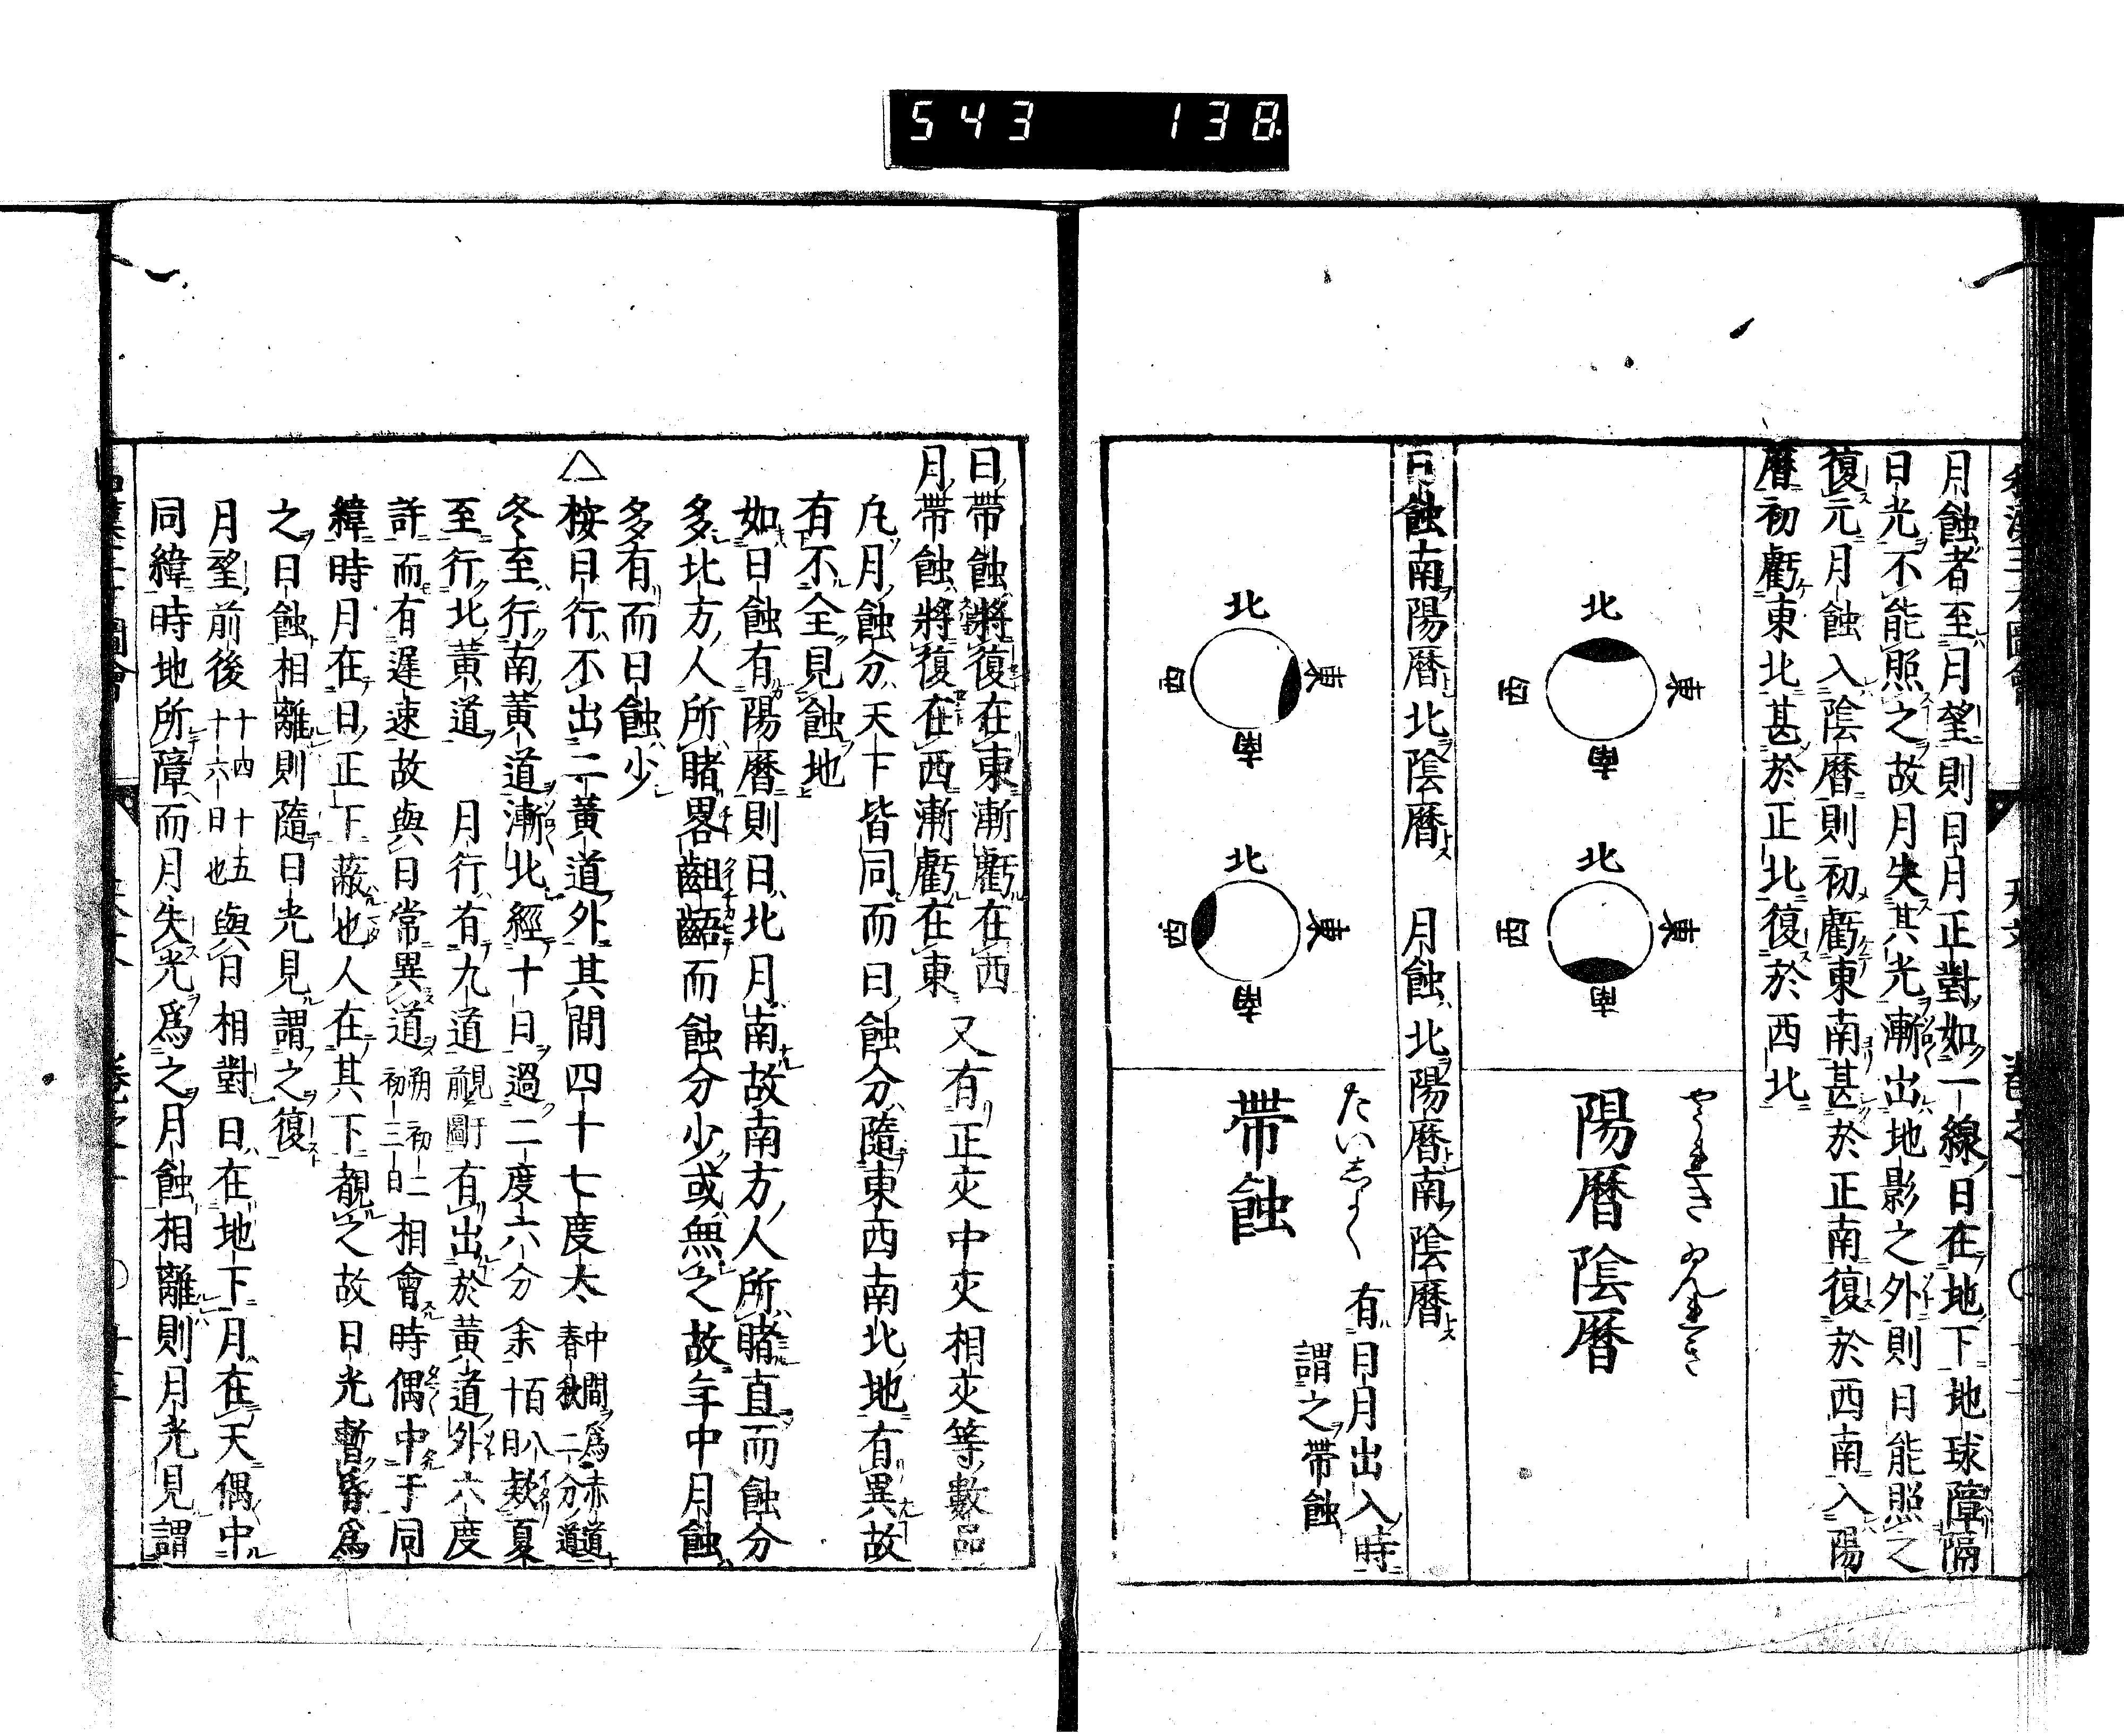 543 138
月蝕者至月望則日月正對如一線日在地下地球障隔
日光不能照之故月失其光漸出地影之外則日能照之
復元月蝕入陰暦則初虧東南甚於正南復於西南入陽
暦初虧東北甚於正北復於西北
北
東
西
南
北
東
西
南
陽暦陰暦
日蝕南陽暦北陰暦 月蝕北陽暦南陰暦
北
東
西
南
北
東
西
南
たいしよく
帶蝕
有日月出入時
謂之帶蝕
日帶蝕將復在東漸虧在西 又有正交中交相交等數品
月帶蝕將復在西漸虧在東
凡月蝕分天下皆同而日蝕分隨東西南北地有異故
有不全見蝕地
如日蝕有陽暦則日北月南故南方人所睹直而蝕分
多北方人所睹畧齟齬而蝕分少或無之故年中月蝕
多有而日蝕少
△按日行不出二黃道外其間四十七度太 中間爲赤道
春秋二分道
冬至行南黃道漸北經十日過二度六分 余百八
十日 歟夏
至行北黃道 月行有九道 見于
前圖 有出於黃道外六度
許而有遲速故與日常異道 朔初二
初三日 相會時偶中于同
緯時月在日正下蔽也人在其下覩之故日光暫昏爲
之日蝕相離則隨日光見謂之復
月望前後 十四十五
十六日也 與日相對日在地下月在天偶中
同緯時地所障而月失光爲之月蝕相離則月光見謂